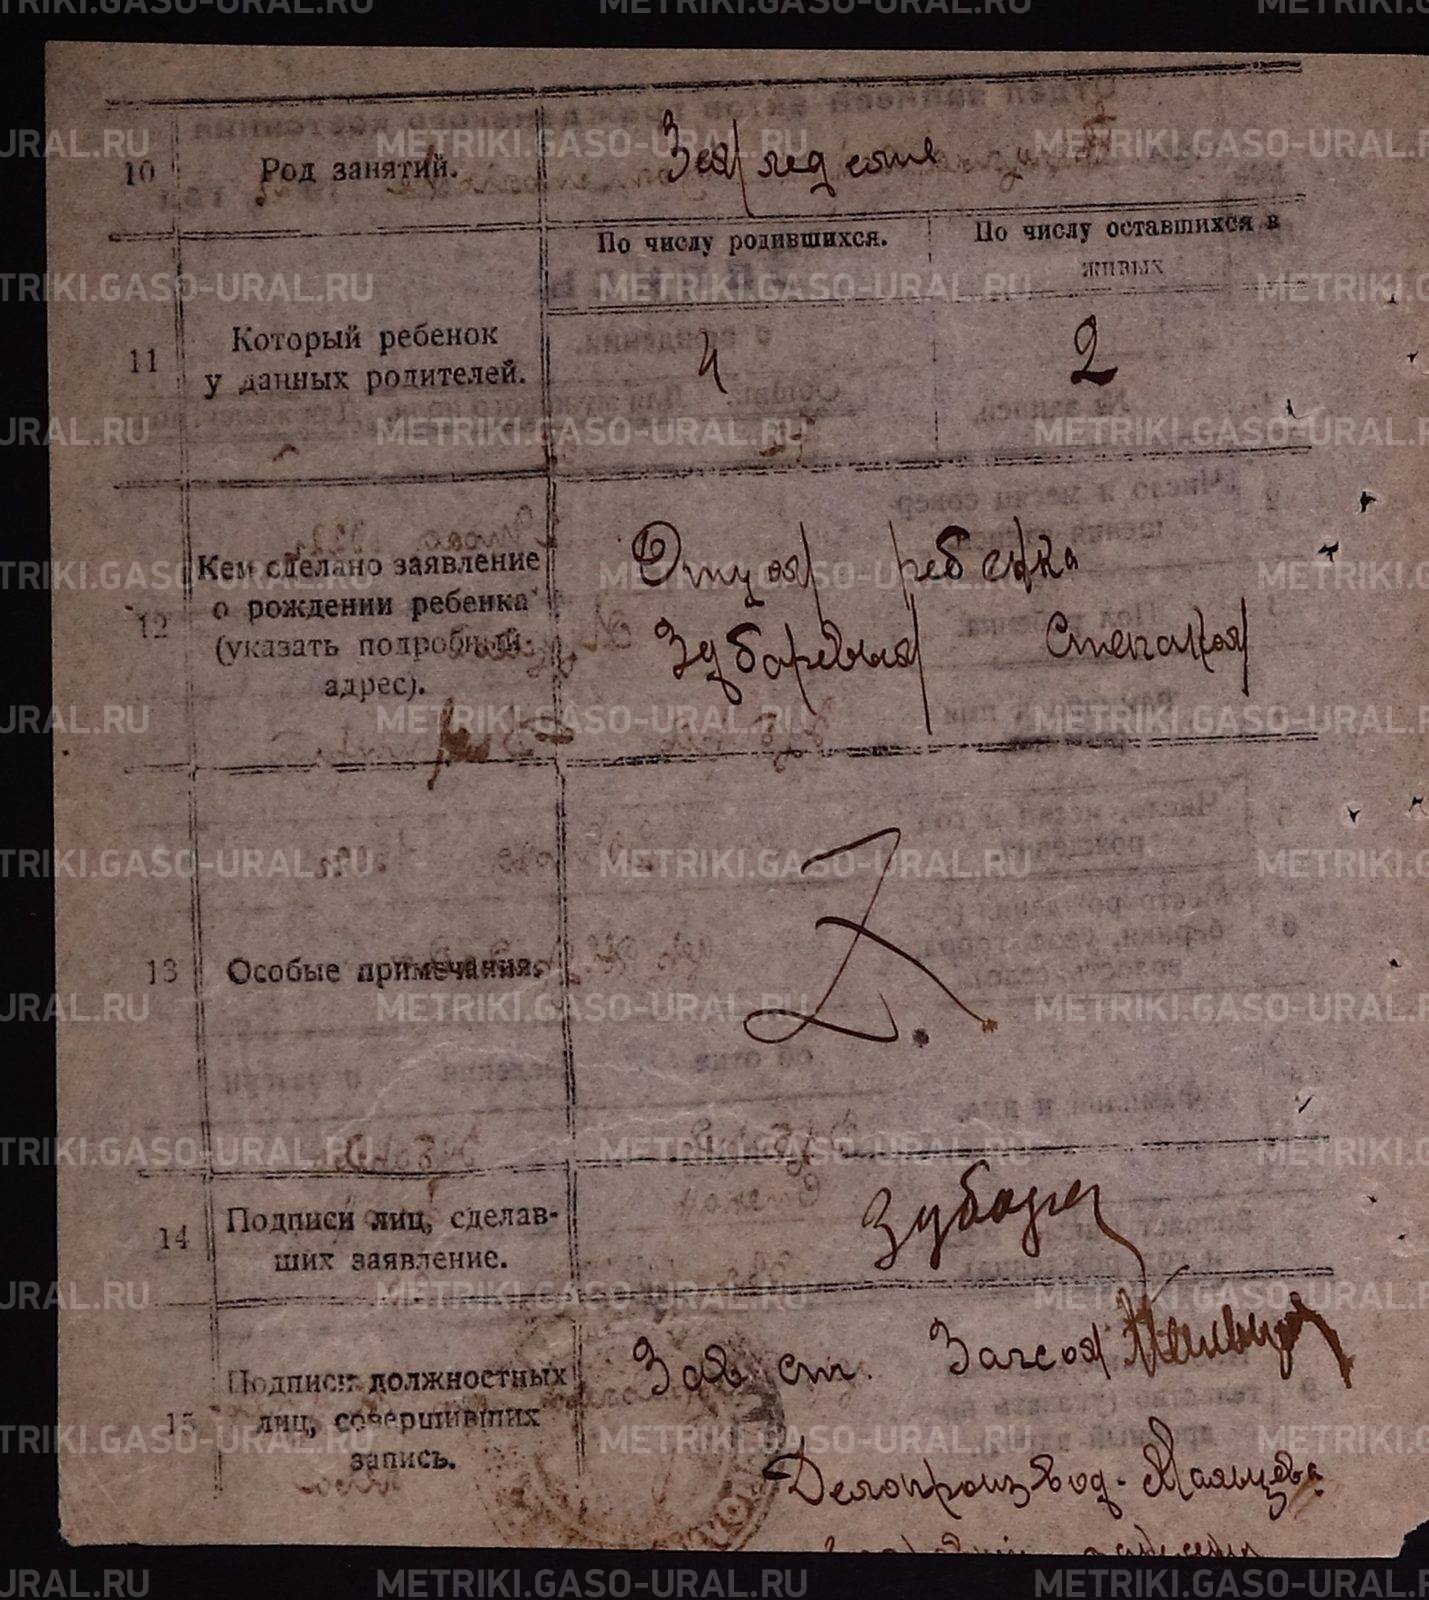 METRIKI.GASO-URAL.RU
10
Род занятий.
Земледелие
11
Который ребенок
у данных родителей.
По числу родившихся.
По числу оставшихся в
живых
4
2
12
Кем сделано заявление
о рождении ребенка
(указать подробный
адрес).
Отцом ребенка
Зубаревым Степаном
13
Особые примечания.
Z.
14
Подписи лиц, сделав-
ших заявление.
Зубарев
15
Подписи должностных
лиц, совершивших
запись.
Зав. ст. Загсом
Делопроизвод.